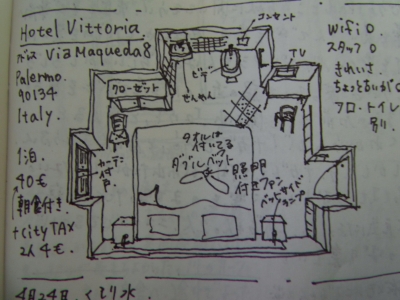 Hotel Vittoria
Via Maqueda 8
Palermo.
90134
Italy.
1泊
40€
朝食付き
+ City TAX
2人 4€.
コンセント
TV
ビデ
せんめん
クローゼット
カーテン
付
タオルは
付いてる
ダブルベット
照明
付きファン
ベットサイド
ランプ
Wifi O.
スタッフ O
きれいさ、
フロ・トイレ
別.
4月24日. くもり